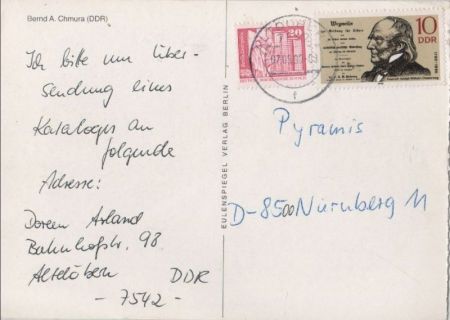 Bernd A. Chmura (DDR)
Ich bitte um Über-
sendung eines
Kataloges an
folgende
Adresse:
Doreen Arland
Bahnhofstr. 98
Altdöbern DDR
- 7542 -
EULENSPIEGEL VERLAG BERLIN
20
Wegweiser
10
DDR
Pyramis
D-8500 Nürnberg 11